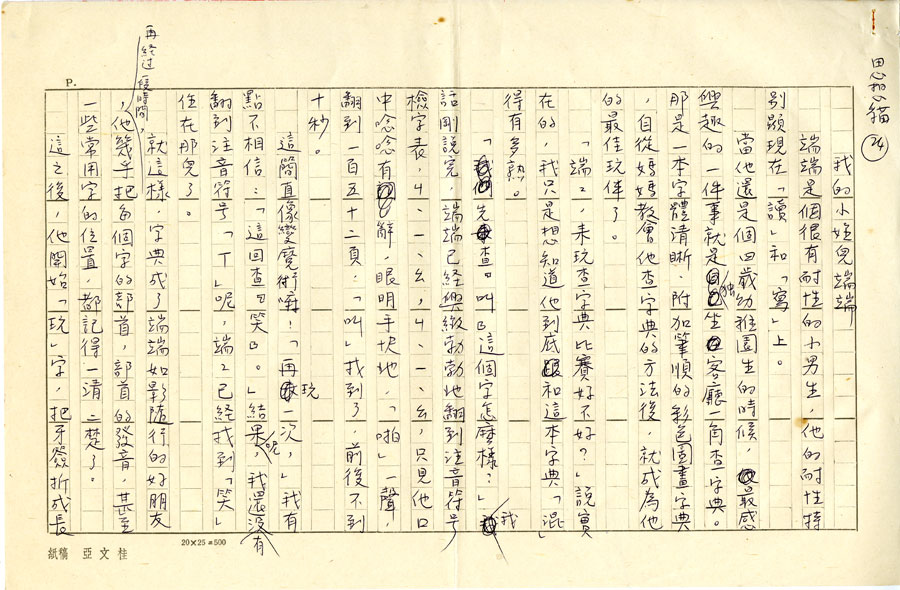 思想貓 24
我的小姪兒端端
端端是個很有耐性的小男生，他的耐性特
別顯現在「讀」和「寫」上。
當他還是個四歲幼稚園生的時候，最感
興趣的一件事就是獨坐客廳一角查字典。
那是一本字體清晰、附加筆順的彩色圖畫字典
，自從媽媽教會他查字典的方法後，就成為他
的最佳玩伴了。
「端端，來玩查字典比賽好不好？」說實
在的，我只是想知道他到底和這本字典「混」
得有多熟。
「先查『叫』這個字怎麼樣？」我
話剛說完，端端已經興緻勃勃地翻到注音符號
檢字表，ㄐ、ㄧ、ㄠ，ㄐ、ㄧ、ㄠ，只見他口
中唸唸有辭，眼明手快地，「啪」一聲，
翻到一百五十二頁：「叫」找到了，前後不到
十秒。
這簡直像變魔術嘛！「再玩一次，」我有
點不相信：「這回查『笑』。」結果呢，我還沒有
翻到注音符號「ㄒ」呢，端端已經找到「笑」
住在那兒了。
就這樣，字典成了端端如影隨行的好朋友
，再經過一段時間，他幾乎把每個字的部首，部首的發音，甚至
一些常用字的位置，都記得一清二楚了。
這之後，他開始「玩」字，把牙籤折成長
P.
20×25=500
紙稿 亞文桂